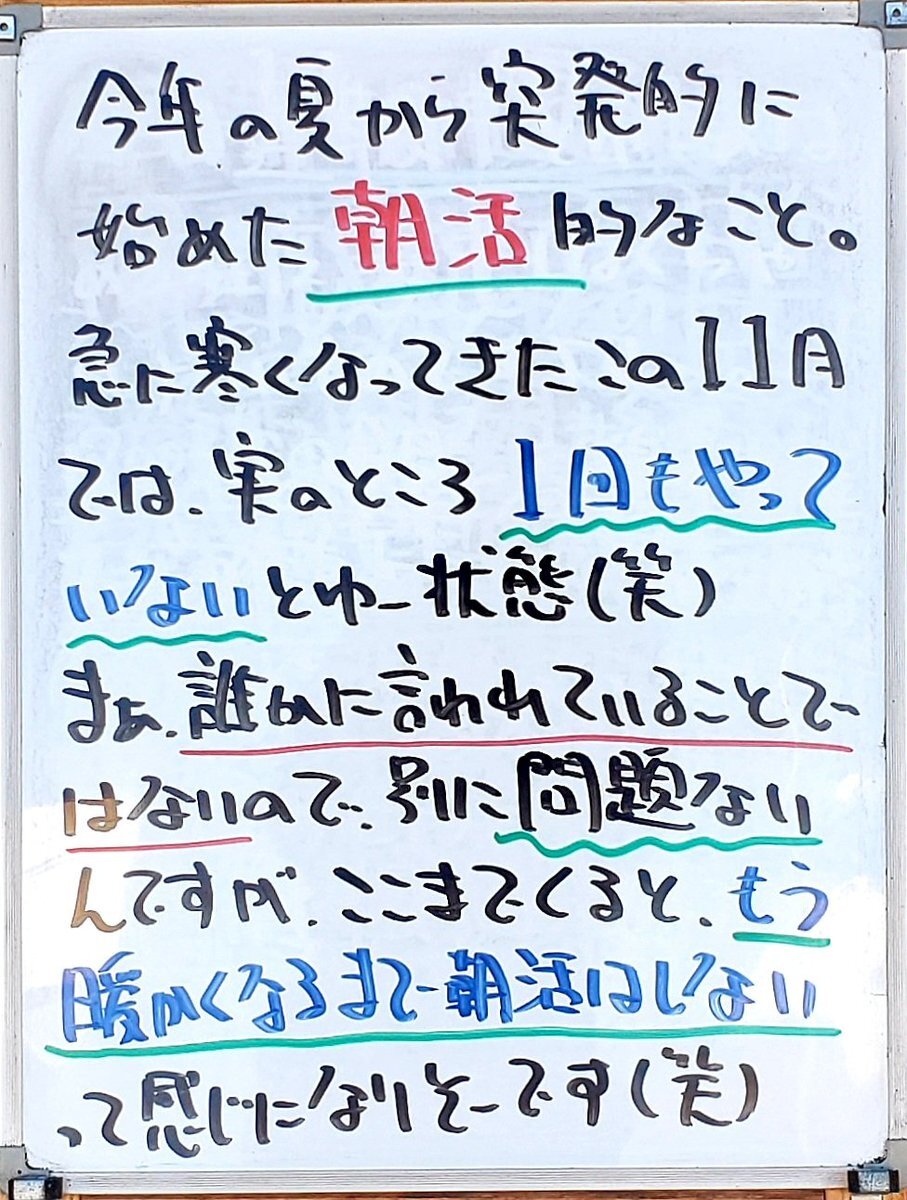 今年の夏から突発的に
始めた朝活的なこと。
急に寒くなってきたこの11月
では、実のところ1日もやって
いないとゆー状態(笑)
まぁ、誰かに言われていることで
はないので、別に問題ない
んですが、ここまでくると、もう
暖かくなるまで朝活はしない
って感じになりそーです(笑)